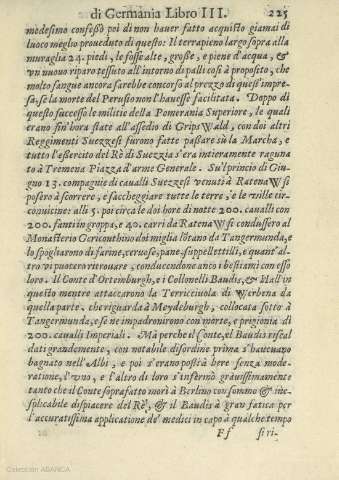 di Germania Libro III. 225
medesimo confessò poi di non hauer fatto acquisto giamai di
luoco meglio proueduto di questo: Il terrapieno largo sopra alla
muraglia 24. piedi, le fosse alte, grosse, e piene d'acqua, &
vn nuouo riparo tessuto all'intorno di palli così à proposito, che
molto sangue ancora sarebbe concorso al prezzo di quest'impre-
sa, se la morte del Perusio non l'hauesse facilitata. Doppo di
questo successo le militie della Pomerania Superiore, le quali
erano sin'hora state all'assedio di GripsWald, con doi altri
Reggimenti Suezzesi furono fatte passare sù la Marcha, e
tutto l'essercito del Rè di Suezzia s'era intieramente raguna
to à Tremena Piazza d'arme Generale. Su'l principio di Giu
gno 13. compagnie di caualli Suezzesi venuti à RatenaW si
posero à scorrere, e saccheggiare tutte le terre, e le ville cir-
conuicine: alli 5. poi circa le doi hore di notte 200. caualli con
200. fanti in groppa, e 40. carri da RatenaW si condussero al
Monasterio Gericonthino doi miglia lõtano da Tangermunda, e
lo spogliarono di farine, ceruose, pane, suppellettili, e quant'al-
tro vi puotero ritrouare, conducendone anco i bestiami con esso
loro. Il Conte d'Ortemburgh, e i Collonelli Baudis, & Hall in
questo mentre attaccarono la Terricciuola di Werbena da
quella parte, che riguarda à Meydeburgh, collocata sotto à
Tangermunda, e se ne impadronirono con morte, e prigionia di
200. caualli Imperiali. Mà perche il Conte, el Baudis riscal
dati grandemente, con notabile disordine prima s'haueuano
bagnato nell'Albi, e poi s'erano posti à bere senza mode-
ratione, l'vno, e l'altro di loro s'infermò grauissimamente
tanto che il Conte soprafatto morì à Berlino con sommo & ine-
splicabile dispiacere del Rè, & il Baudis à grau fatica per
l'accuratissima applicatione de' medici in capo à qualche tempo
Ff si ri-
Colección ABANCA